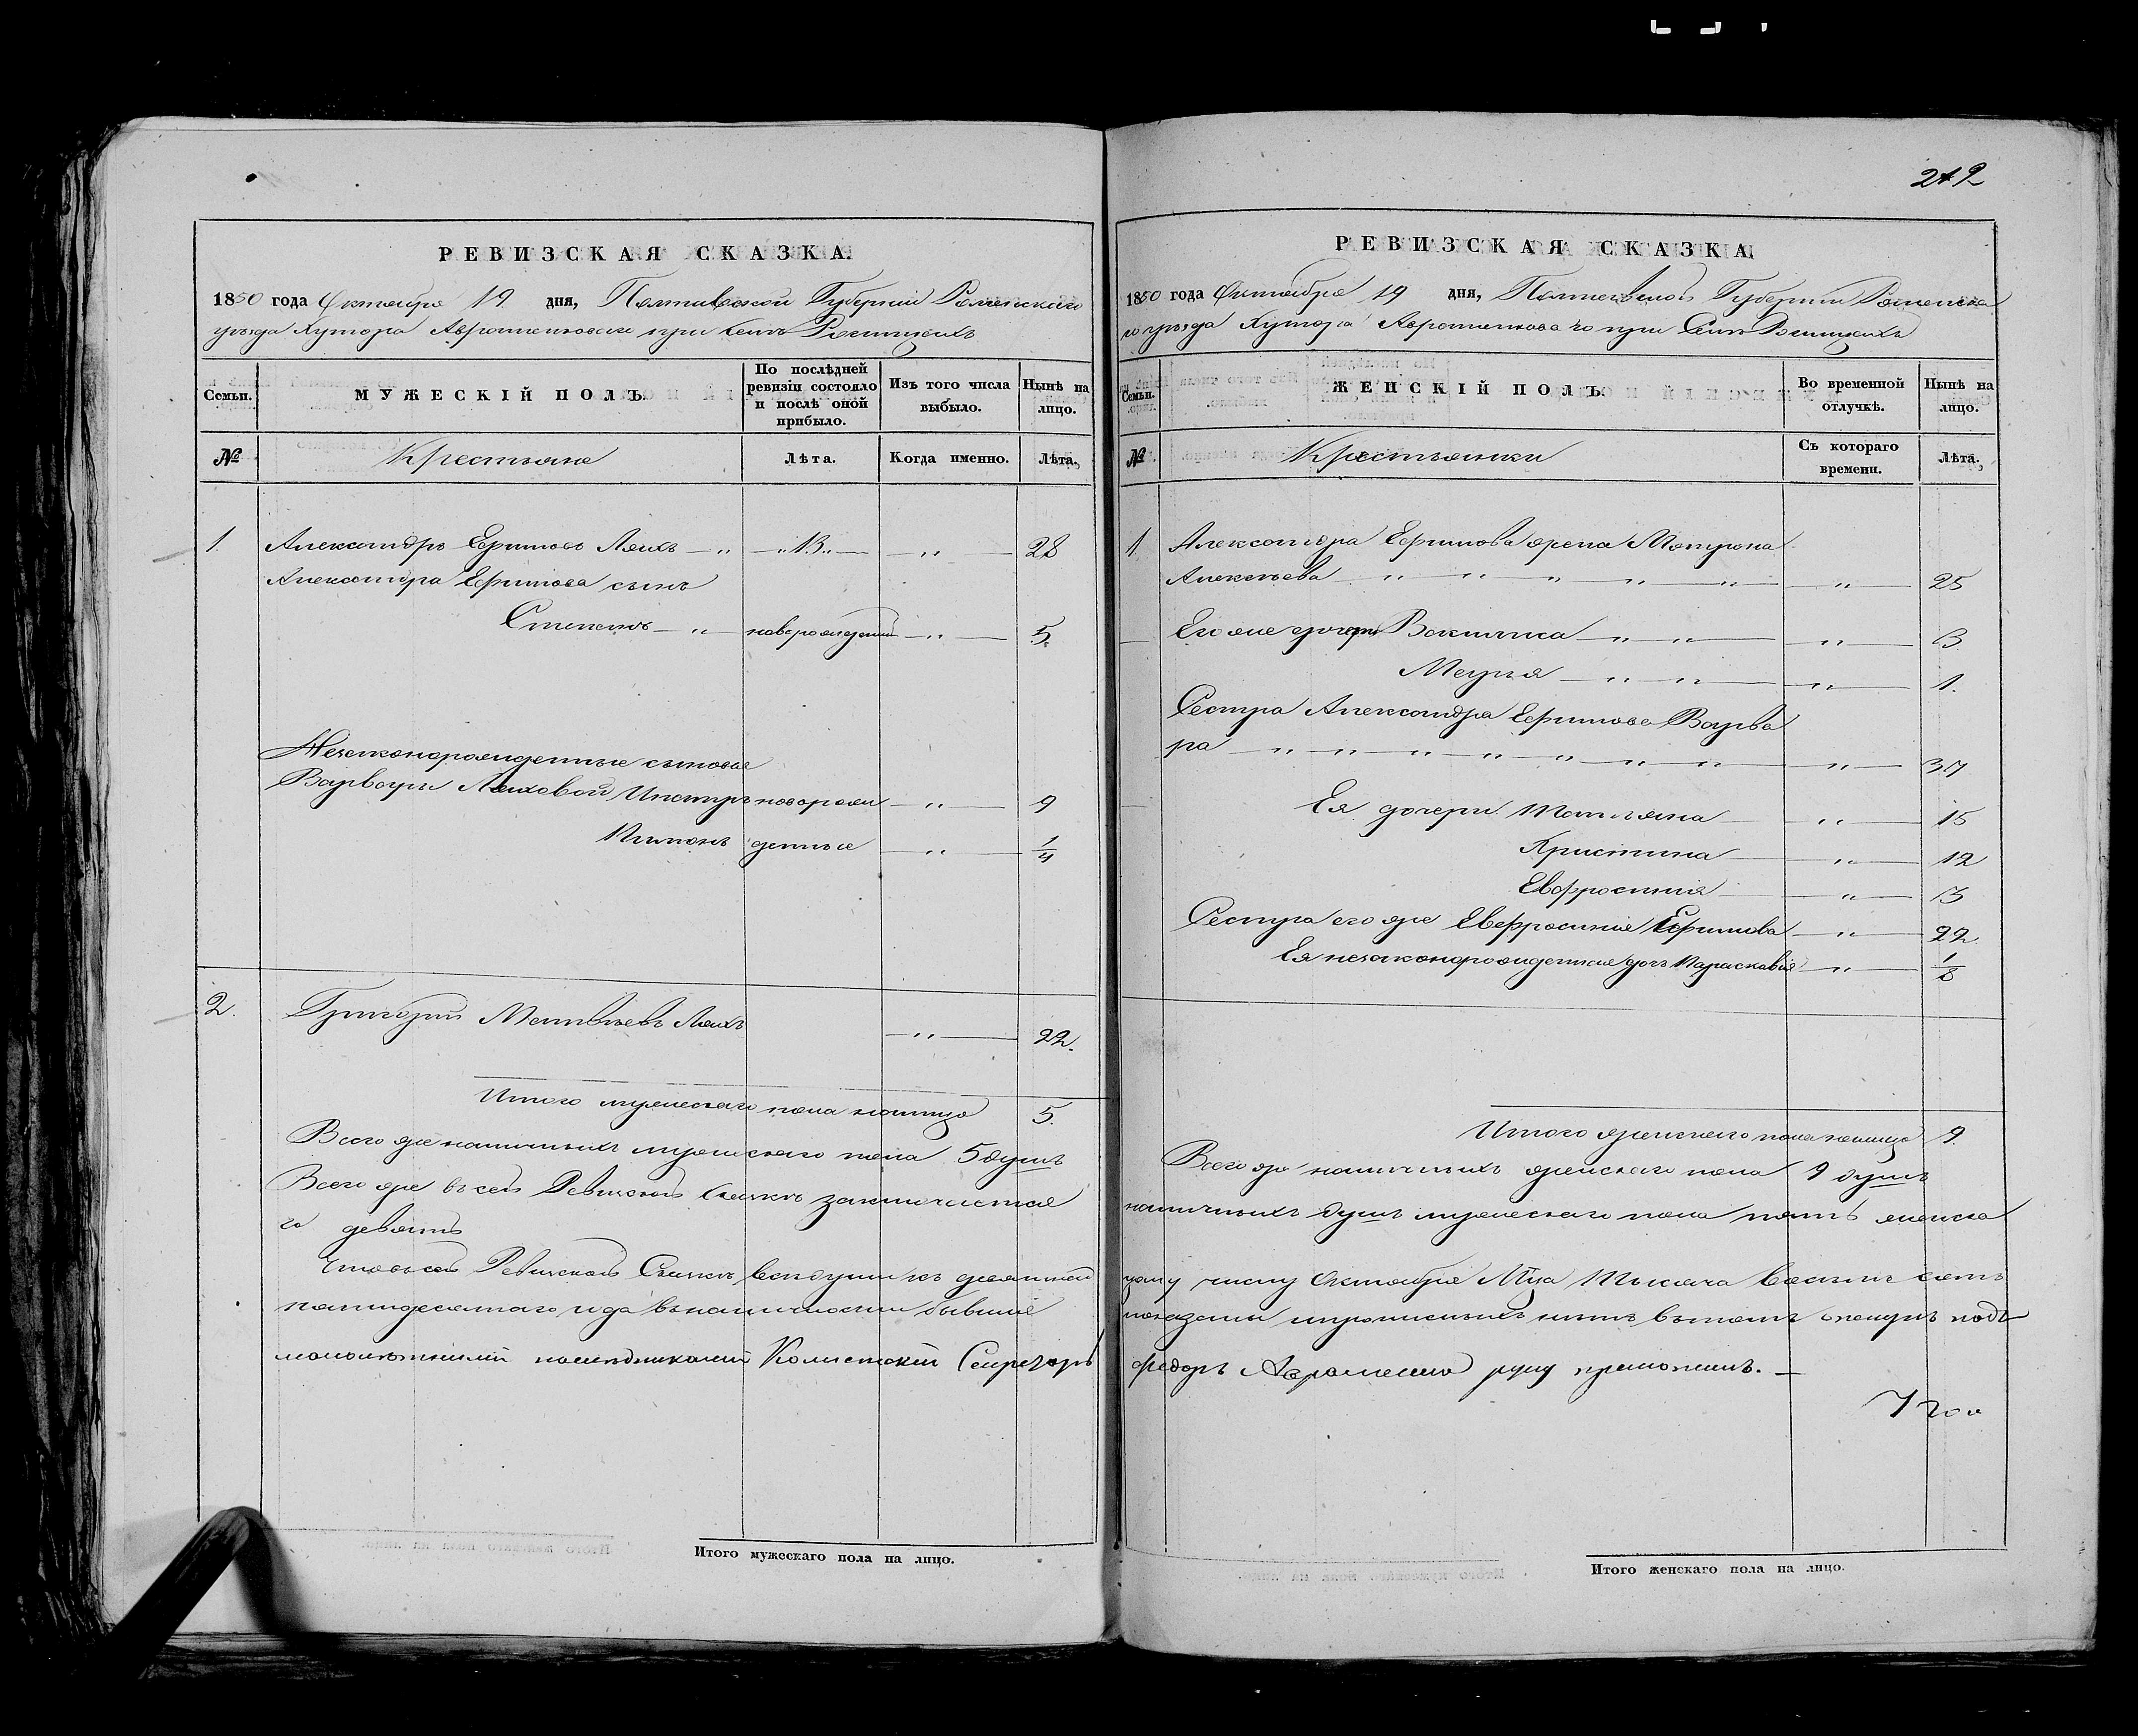 212
РЕВИЗСКАЯ СКАЗКА.
1850 года Октября 19 дня, Полтавской Губерніи Роменскаго
уѣзда Хутора Аврашенковаго при Селѣ
Семьи.
МУЖЕСКІЙ ПОЛЪ.
По послѣдней ревизіи состояло и послѣ оной прибыло.
Изъ того числа выбыло.
Нынѣ на лицо.
№
Крестьяне
Лѣта.
Когда именно.
Лѣта.
1. Александръ Ефимовъ Ляхъ — " — "13" — " — 28
Александра Ефимова сынъ
Степанъ — " — новорожденный — " — 5.
Незаконорожденные сыновья
Варвары Ляховой новорож — " — 9
денные — " — 1/4
2. Григорій Матвѣевъ Ляхъ — " — 22.
Итого мужескаго пола налицо 5.
Всего же наличныхъ мужескаго пола 5 душъ
Всего же въ сей Ревизской Сказкѣ заключается
го девять
Что въ сей Ревизской Сказкѣ всѣ души къ
пятидесятаго года въ наличности бывшіе
малолѣтними наслѣдниками Колежскій Секретарь
РЕВИЗСКАЯ СКАЗКА.
1850 года Октября 19 дня, Полтавской Губерніи Роменска
го уѣзда Хутора Аврашенковаго при Селѣ
Семьи.
ЖЕНСКІЙ ПОЛЪ.
Во временной отлучкѣ.
Нынѣ на лицо.
№
Крестьянки
Съ котораго времени.
Лѣта.
1. Александра Ефимова жена Матрона
Алексѣева " " " " " — " — 25
Его же дочери Васылиса — " — " — " — 3
Марья — " — " — " — 1.
Сестра Александра Ефимова Варва
ра — " — " — " — " — " — " — " — " — 37
Ея дочери Татьяна — " — 15
Христина — " — 12
Евфросинія — " — 3
Сестра его же Евфросинія Ефимова — " — 22
Ея незаконорожденная дочь Параскавія — " — 1/2
Итого женскаго пола налицо 9.
Всего же наличныхъ женскаго пола 9 душъ
наличныхъ душъ мужескаго пола пять женска
числу Октября Мца Тысяча восемь сотъ
показаны и прописныхъ нѣтъ въ томъ опекунъ надъ
Федоръ Аврамешко руку приложилъ. —
Итого мужескаго пола на лицо.
Итого женскаго пола на лицо.